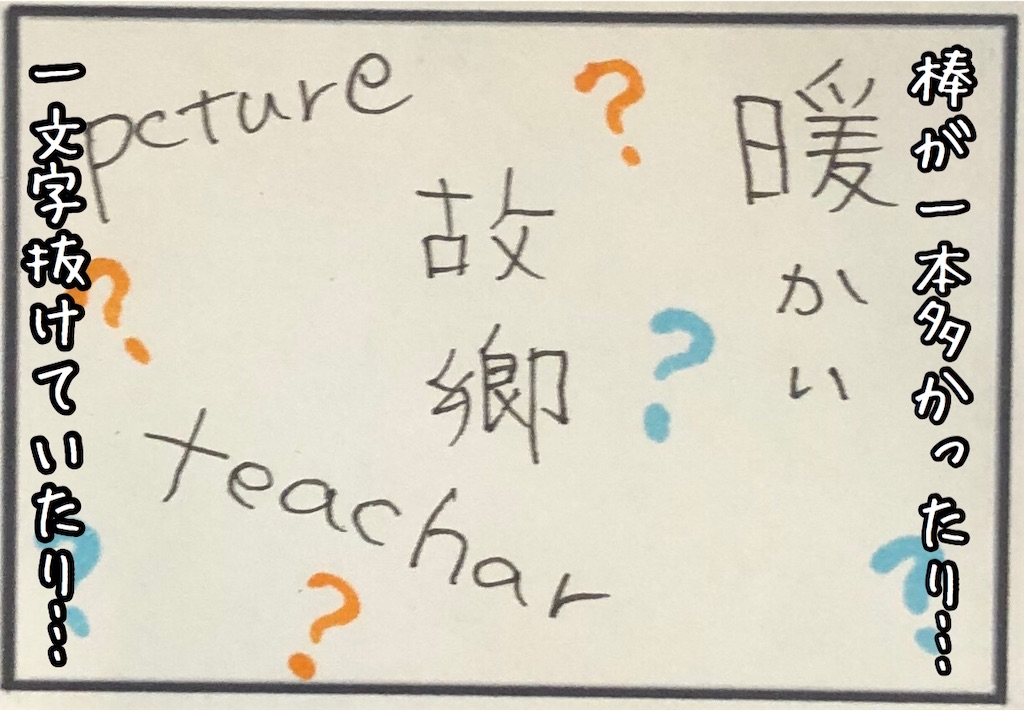 棒が一本多かったり…
暖かい
故郷
pcture
teachar
一文字抜けていたり…